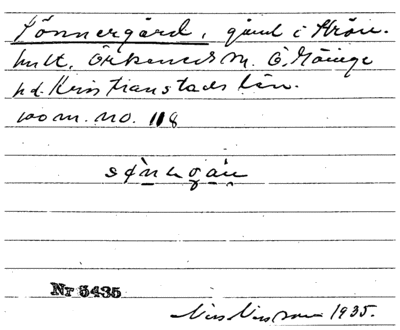 Sönnergård, gård i Strön-
hult, Örkeneds sn. Ö. Göinge
hd. Kristianstads län.
no. 118
Nr 5435
Nils Nilsson 1935.